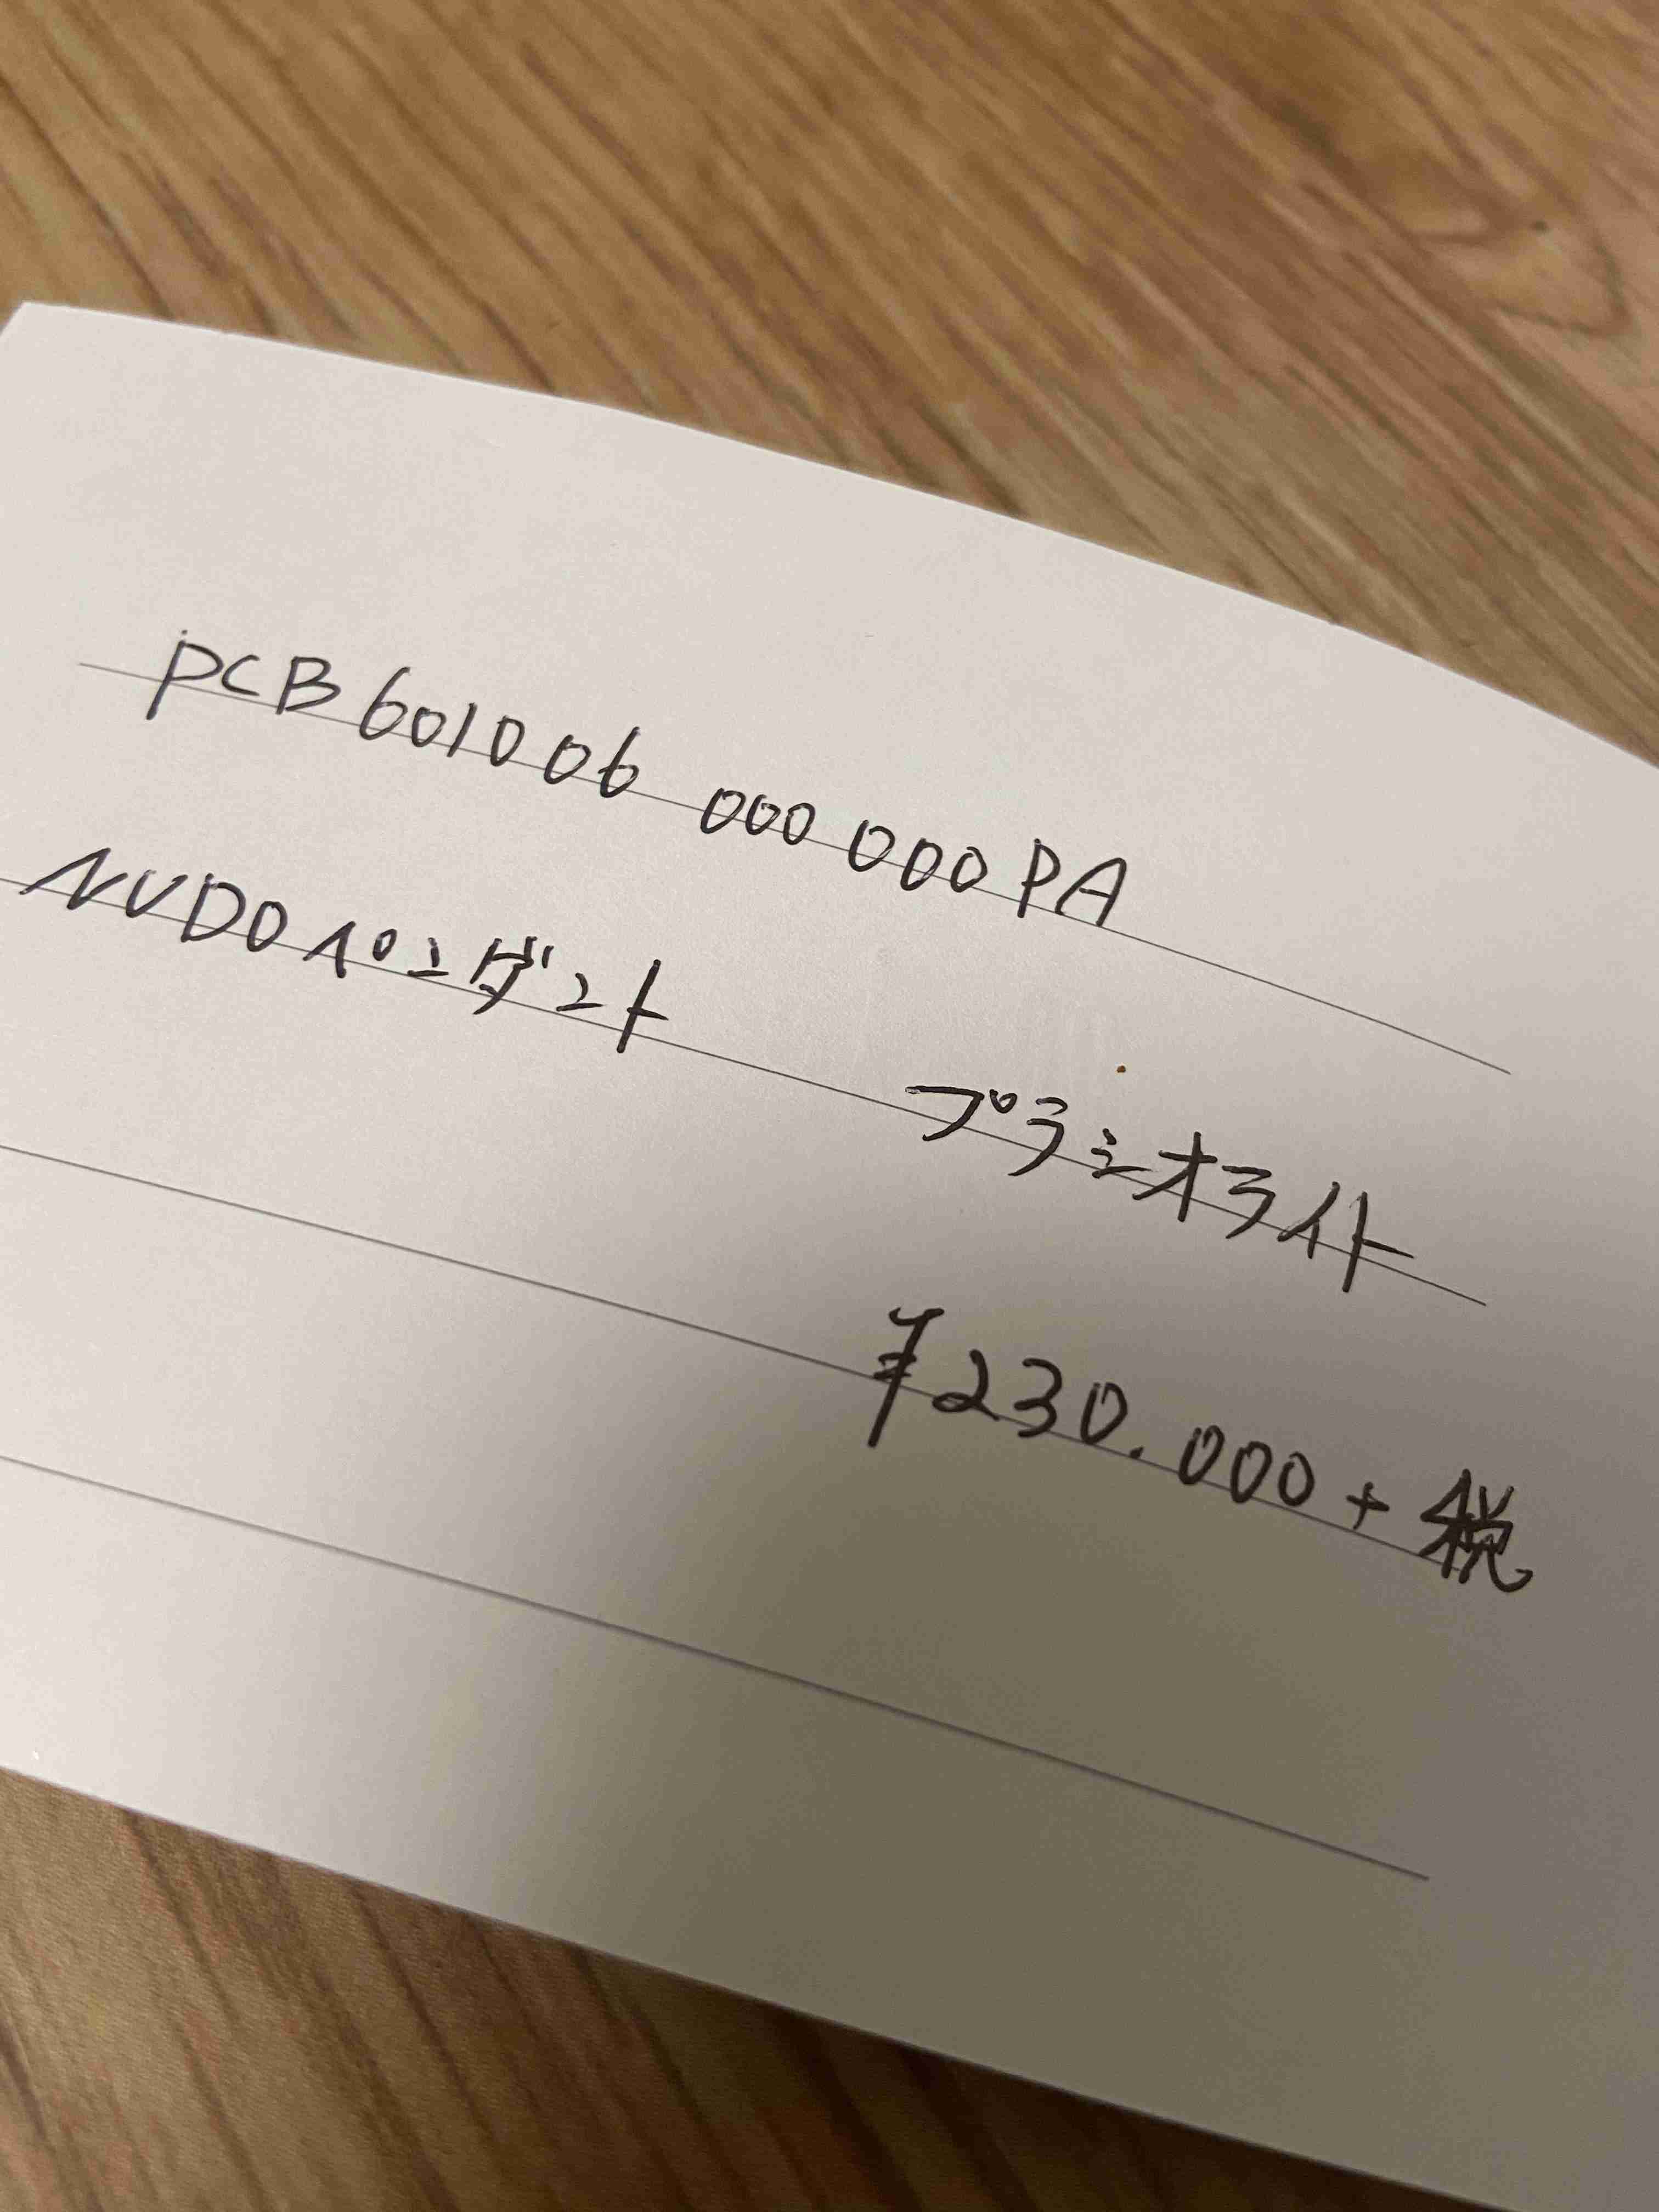 PCB601006 000000PA
NUDOペンダント プラシオライト
¥230.000+税